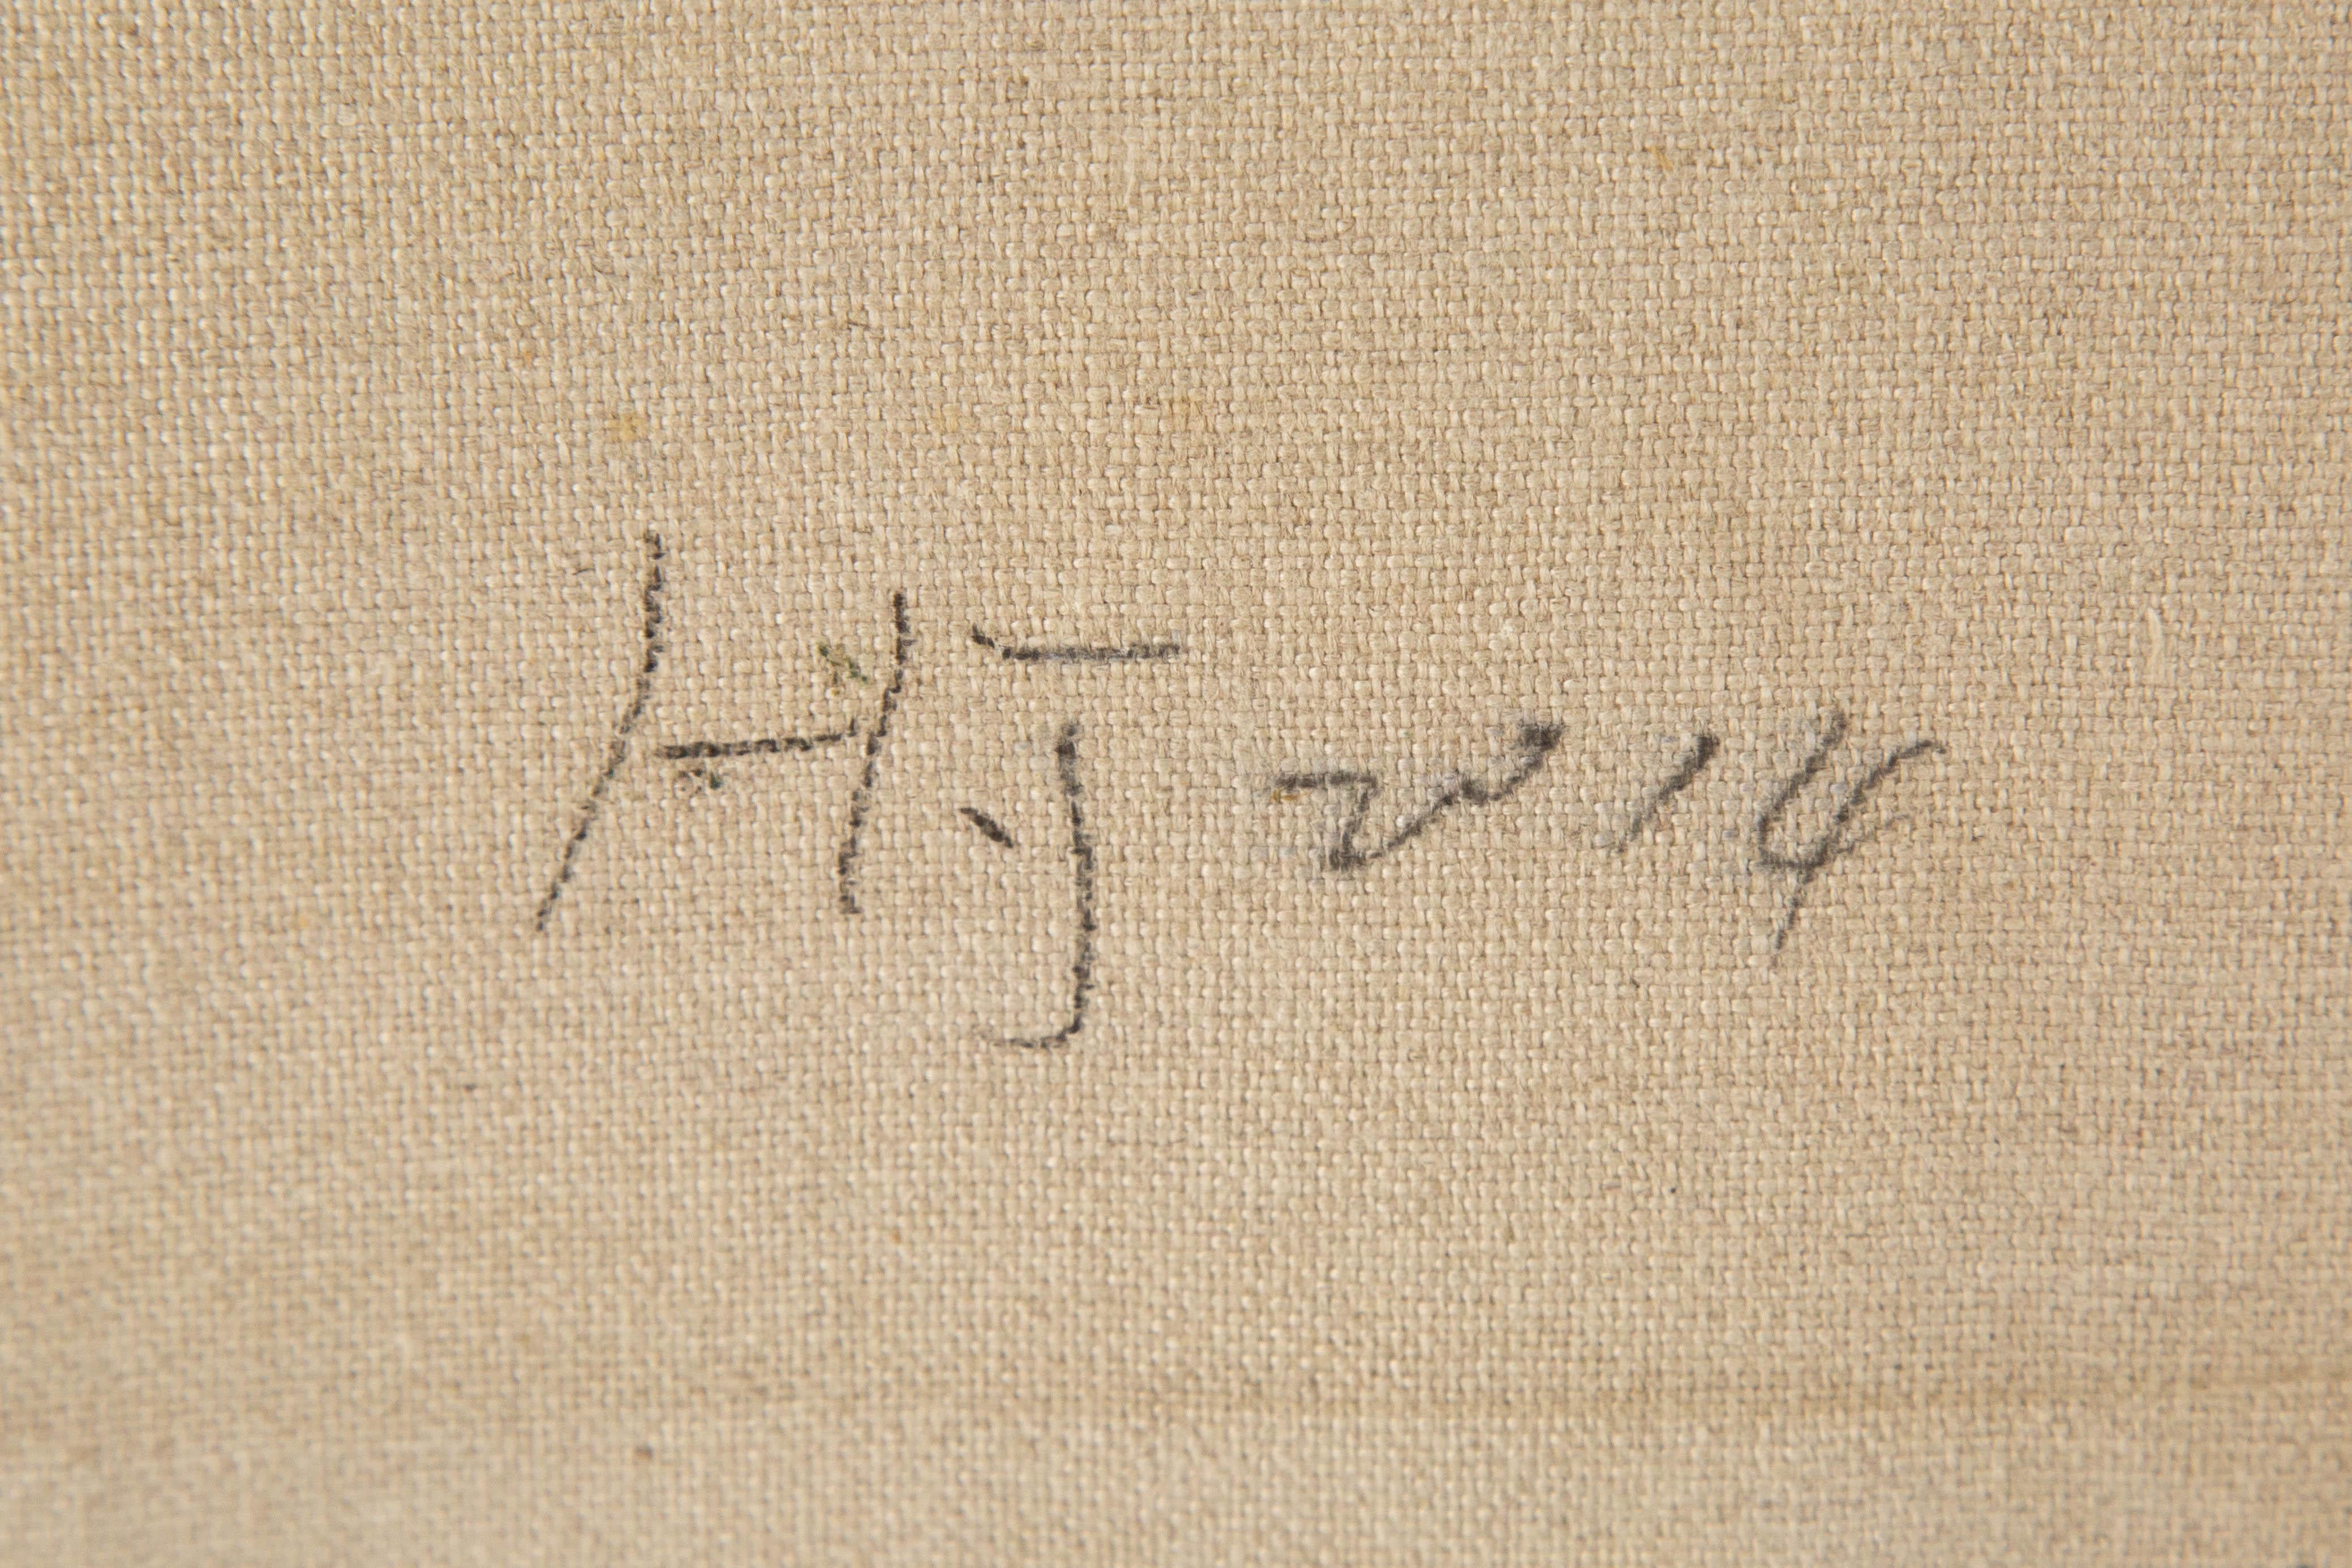 HJ 2014